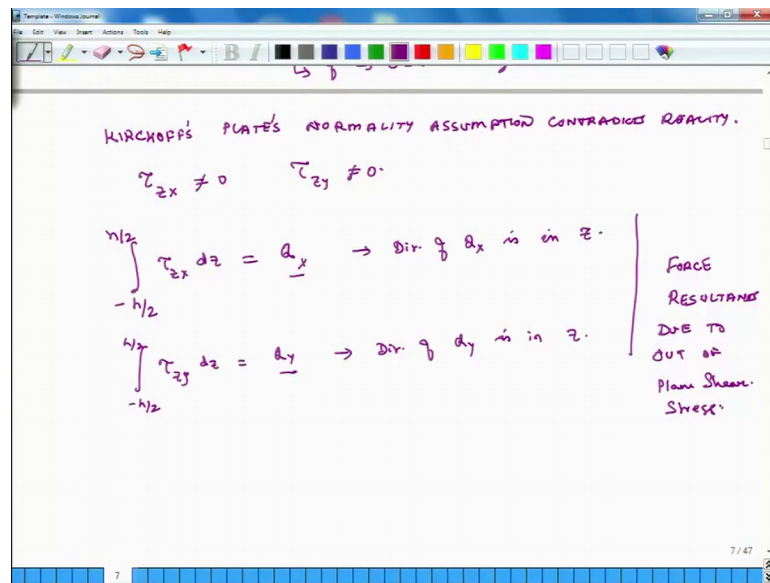 Template - Windows Journal
File Edit View Insert Actions Tools Help
B I
KIRCHOFF'S PLATE'S NORMALITY ASSUMPTION CONTRADICTS REALITY.
τzx ≠ 0 τzy ≠ 0.
∫_{-h/2}^{h/2} τzx dz = Qx → Dir. of Qx is in z.
∫_{-h/2}^{h/2} τzy dz = Qy → Dir. of Qy is in z.
FORCE
RESULTANTS
DUE TO
OUT OF
Plane Shear.
Stress.
7 / 47
7